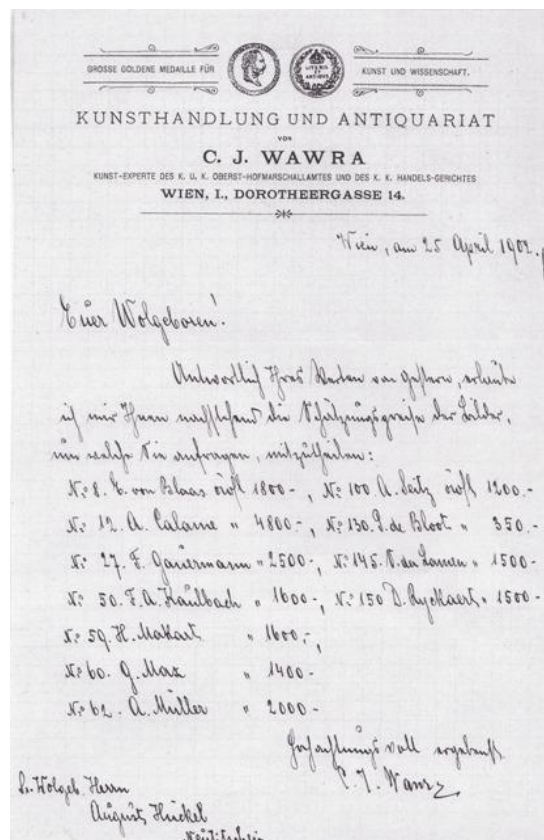 GROSSE GOLDENE MEDAILLE FÜR
KUNST UND WISSENSCHAFT.
KUNSTHANDLUNG UND ANTIQUARIAT
VON
C. J. WAWRA
KUNST-EXPERTE DES K. U. K. OBERST-HOFMARSCHALLAMTES UND DES K. K. HANDELS-GERICHTES
WIEN, I., DOROTHEERGASSE 14.
Wien, am 25 April 1902.
Euer Wolgeboren!
Antwortlich Ihres Werten von gestern, erlaube
ich mir Ihnen nachstehend die Schätzungspreise der Bilder,
um welche Sie anfragen, mitzutheilen:
No 8. E. von Blaas 1800.-, No 100. A. Seitz 1200.-
No 12. A. Calame " 4800.-, No 130. P. de Bloot " 350.-
No 27. F. Gauermann " 2500.-, No 145. V. der Lamen " 1500-
No 50. F. A. Kaulbach " 1600-, No 150 D. Ryckaert " 1500-
No 59. H. Makart " 1600.-,
No 60. G. Max " 1400-
No 62. A. Müller " 2000-
Hochachtungsvoll ergebenst
C. J. Wawra
Sr. Wolgeb. Herrn
August Hückel
Neutitschein